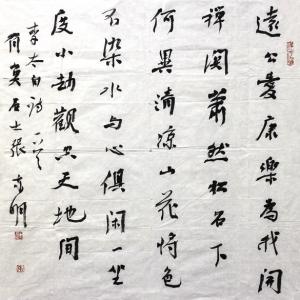 遠公愛康樂為我開
禪関蕭然松石下
何異清凉山花將色
不染水与心俱閑一坐
度小劫觀空天地間
李太白詩一首
居士張